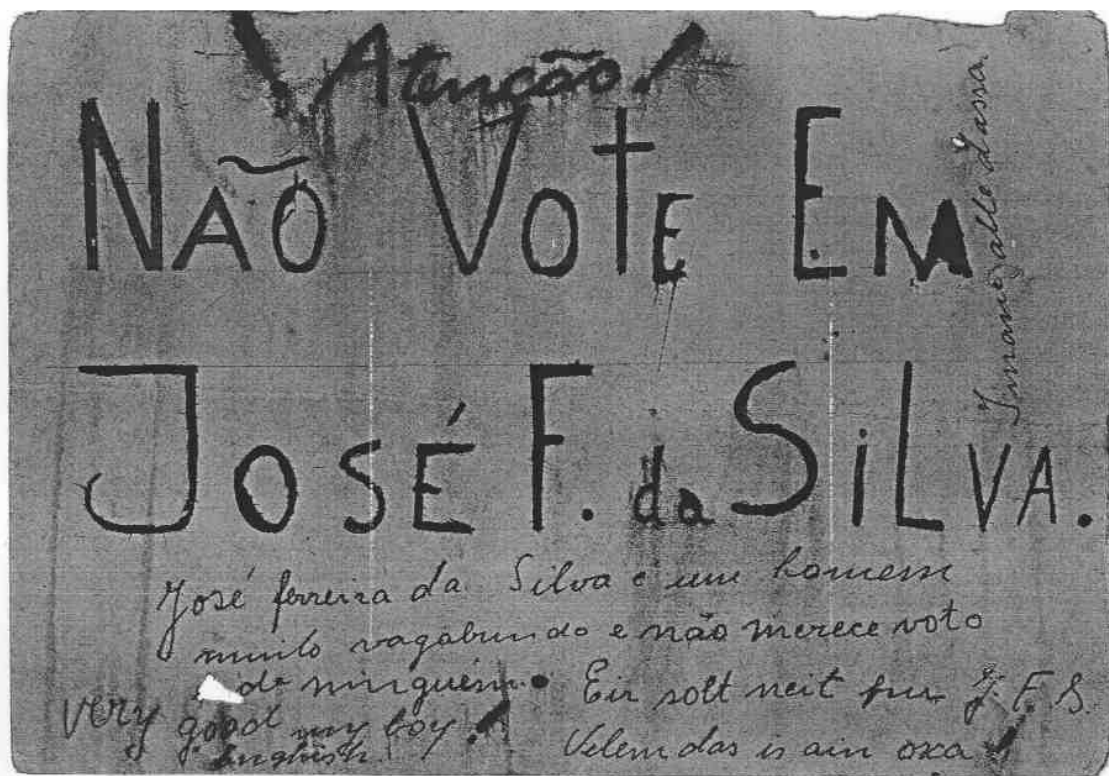 Atenção!
NÃO VOTE EM
JOSÉ F. da SiLVA.
José ferreira da Silva e um homem
muito vagabundo e não merece voto
de ninguém.
Eir solt neit fur J. F. S.
Velem das is ain oxa!
very good my boy!
English.
alle dassa